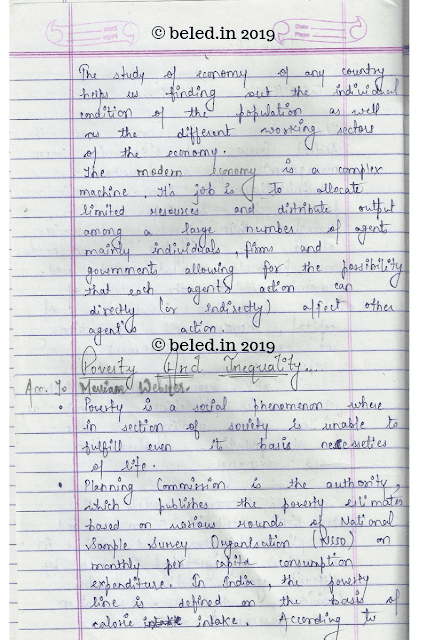 © beled.in 2019
The study of economy of any country
helps us finding out the individual
condition of the population as well
as the different working sectors
of the economy.
The modern economy is a complex
machine. It's job is to allocate
limited resources and distribute output
among a large number of agents
mainly individuals, firms and
governments allowing for the possibility
that each agent's action can
directly (or indirectly) affect other
agent's action.
© beled.in 2019
Poverty And Inequality...
Acc. To Merriam Webster.
• Poverty is a social phenomenon where
in section of society is unable to
fulfill even it basis necesseties
of life.
• Planning Commission is the authority,
which publishes the poverty estimates
based on various rounds of National
Sample Survey Organisation (NSSO) on
monthly per capita consumption
expenditure. In India, the poverty
line is defined on the basis of
calorie intake. According to